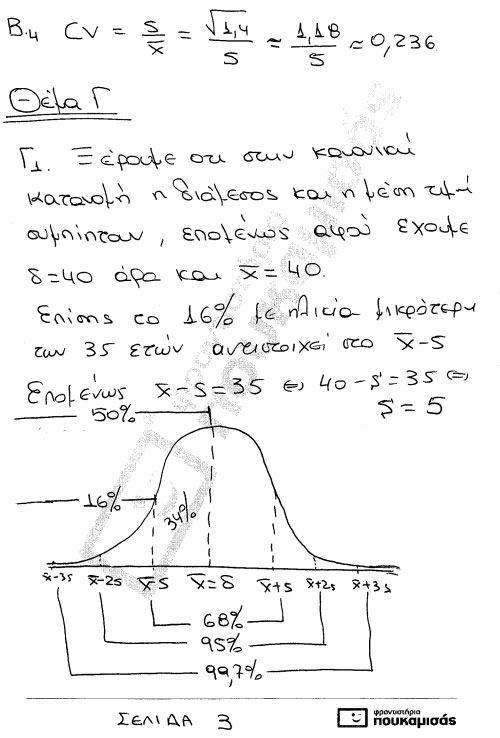 B.4 CV = s/x̄ = √1,4/5 ≈ 1,18/5 ≈ 0,236
Θέμα Γ
Γ1. Ξέρουμε οτι στην κανονική
κατανομή η διάμεσος και η μέση τιμή
συμπίπτουν, επομένως αφού έχουμε
δ=40 άρα και x̄=40.
Επίσης το 16% με ηλικία μικρότερη
των 35 ετών αντιστοιχεί στο x̄-s
Επομένως x̄-s=35 ⇔ 40-s=35 ⇔
s=5
50%
16%
34%
x̄-3s x̄-2s x̄-s x̄=δ x̄+s x̄+2s x̄+3s
68%
95%
99,7%
ΣΕΛΙΔΑ 3
φροντιστήρια
πουκαμισάς
φροντιστήρια
πουκαμισάς